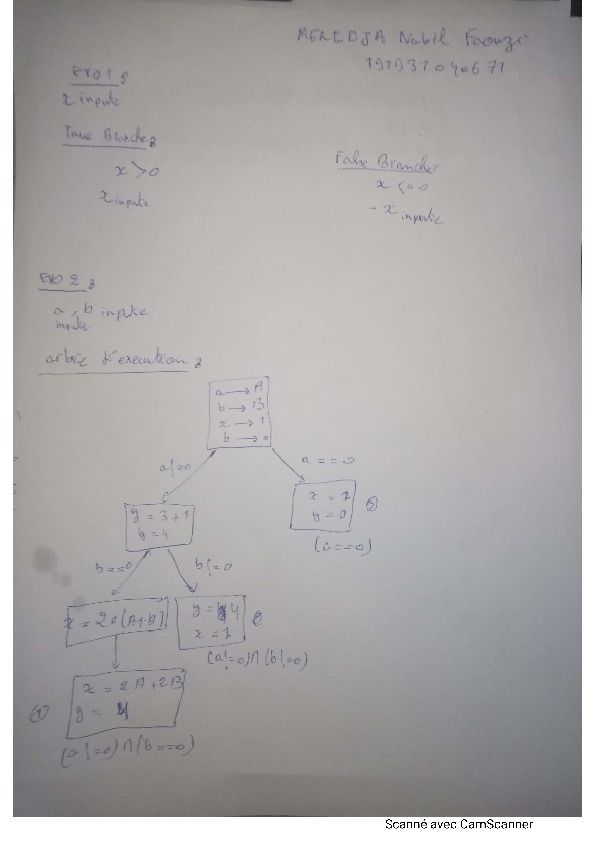 MEREDJA Nabil Faouzi
EXO 1 :
x inpute
True Branche :
x > 0
x inpute
False Branche :
x <= 0
- x inpute
EXO 2 :
a, b inpute
arbre d'execution :
a → A
b → B
x → 1
b → 0
a != 0
a == 0
y = 3 + 1
y = 4
x = 1
y = 0
(a == 0)
b == 0
b != 0
x = 2 * (A+B)
y = 4
x = 1
(a != 0) ∧ (b != 0)
x = 2A + 2B
y = 4
①
(a != 0) ∧ (b == 0)
Scanné avec CamScanner